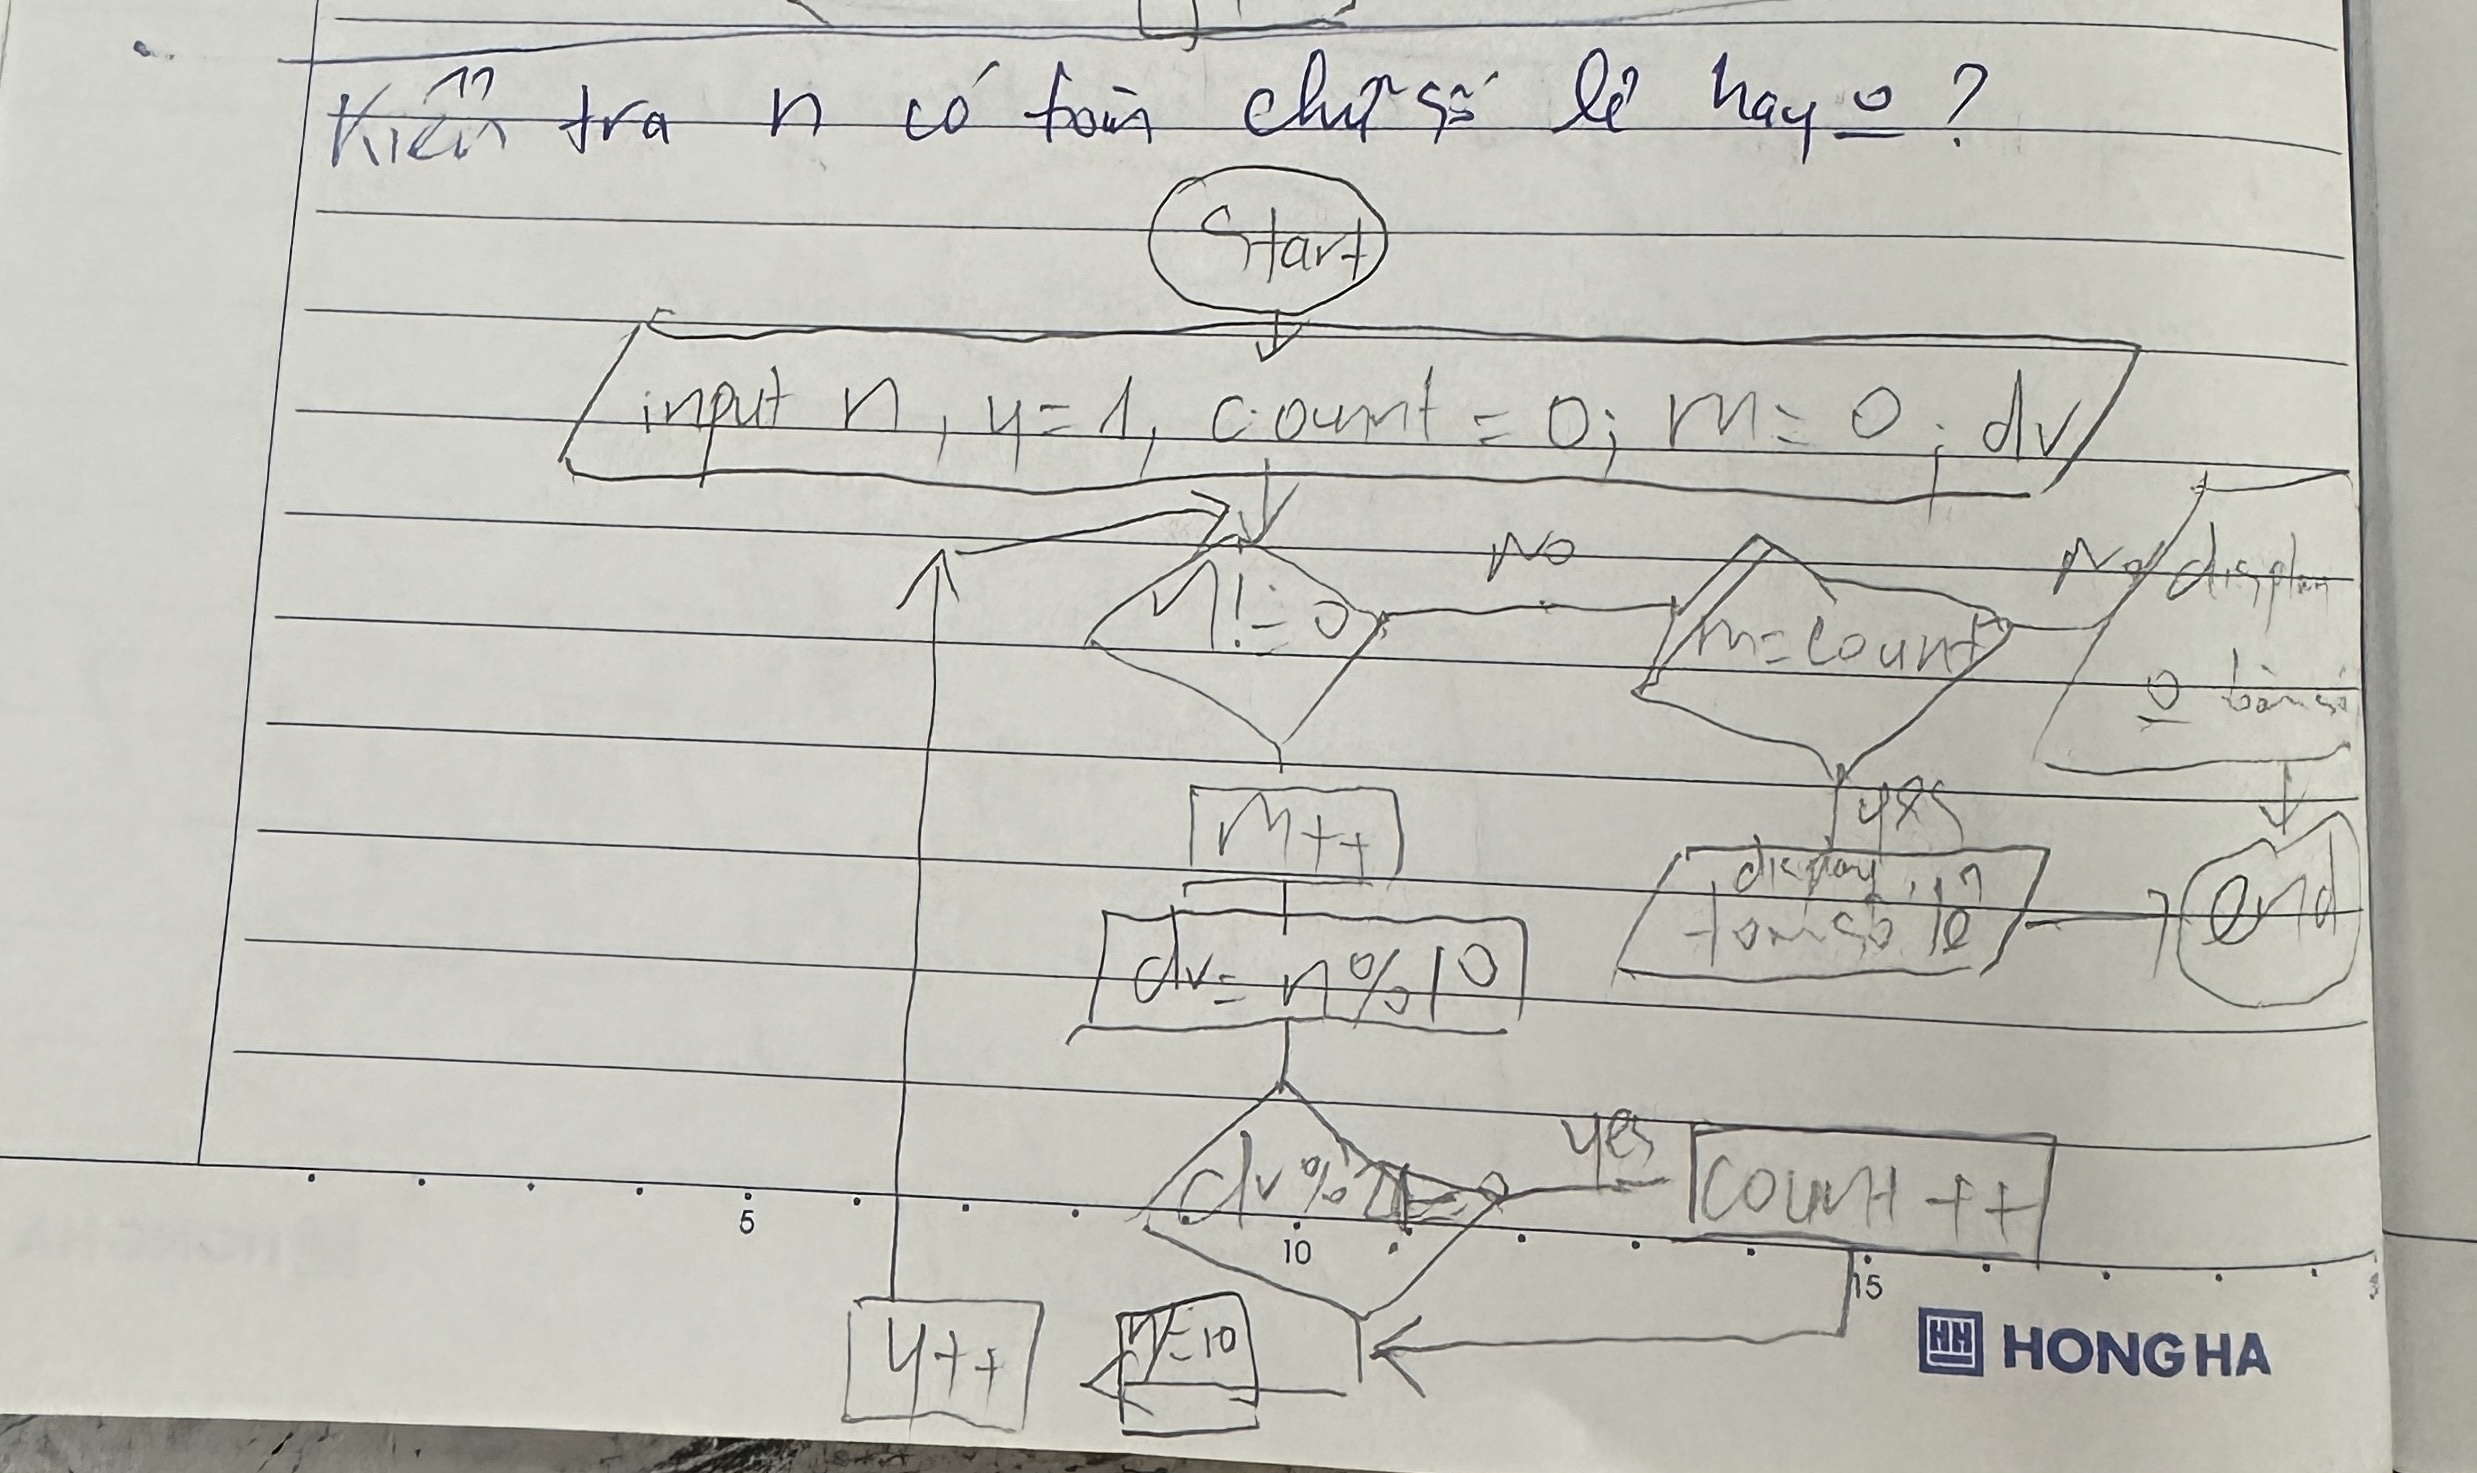 Kiểm tra n có toàn chữ số lẻ hay o ?
Start
input n, y=1, count = 0; m= 0; dv
n!=0
No
m=count
No
display
o toàn số
m++
yes
display
toàn số lẻ
end
dv= n%10
dv%
yes
count ++
5
10
15
y++
n/=10
HH HONG HA